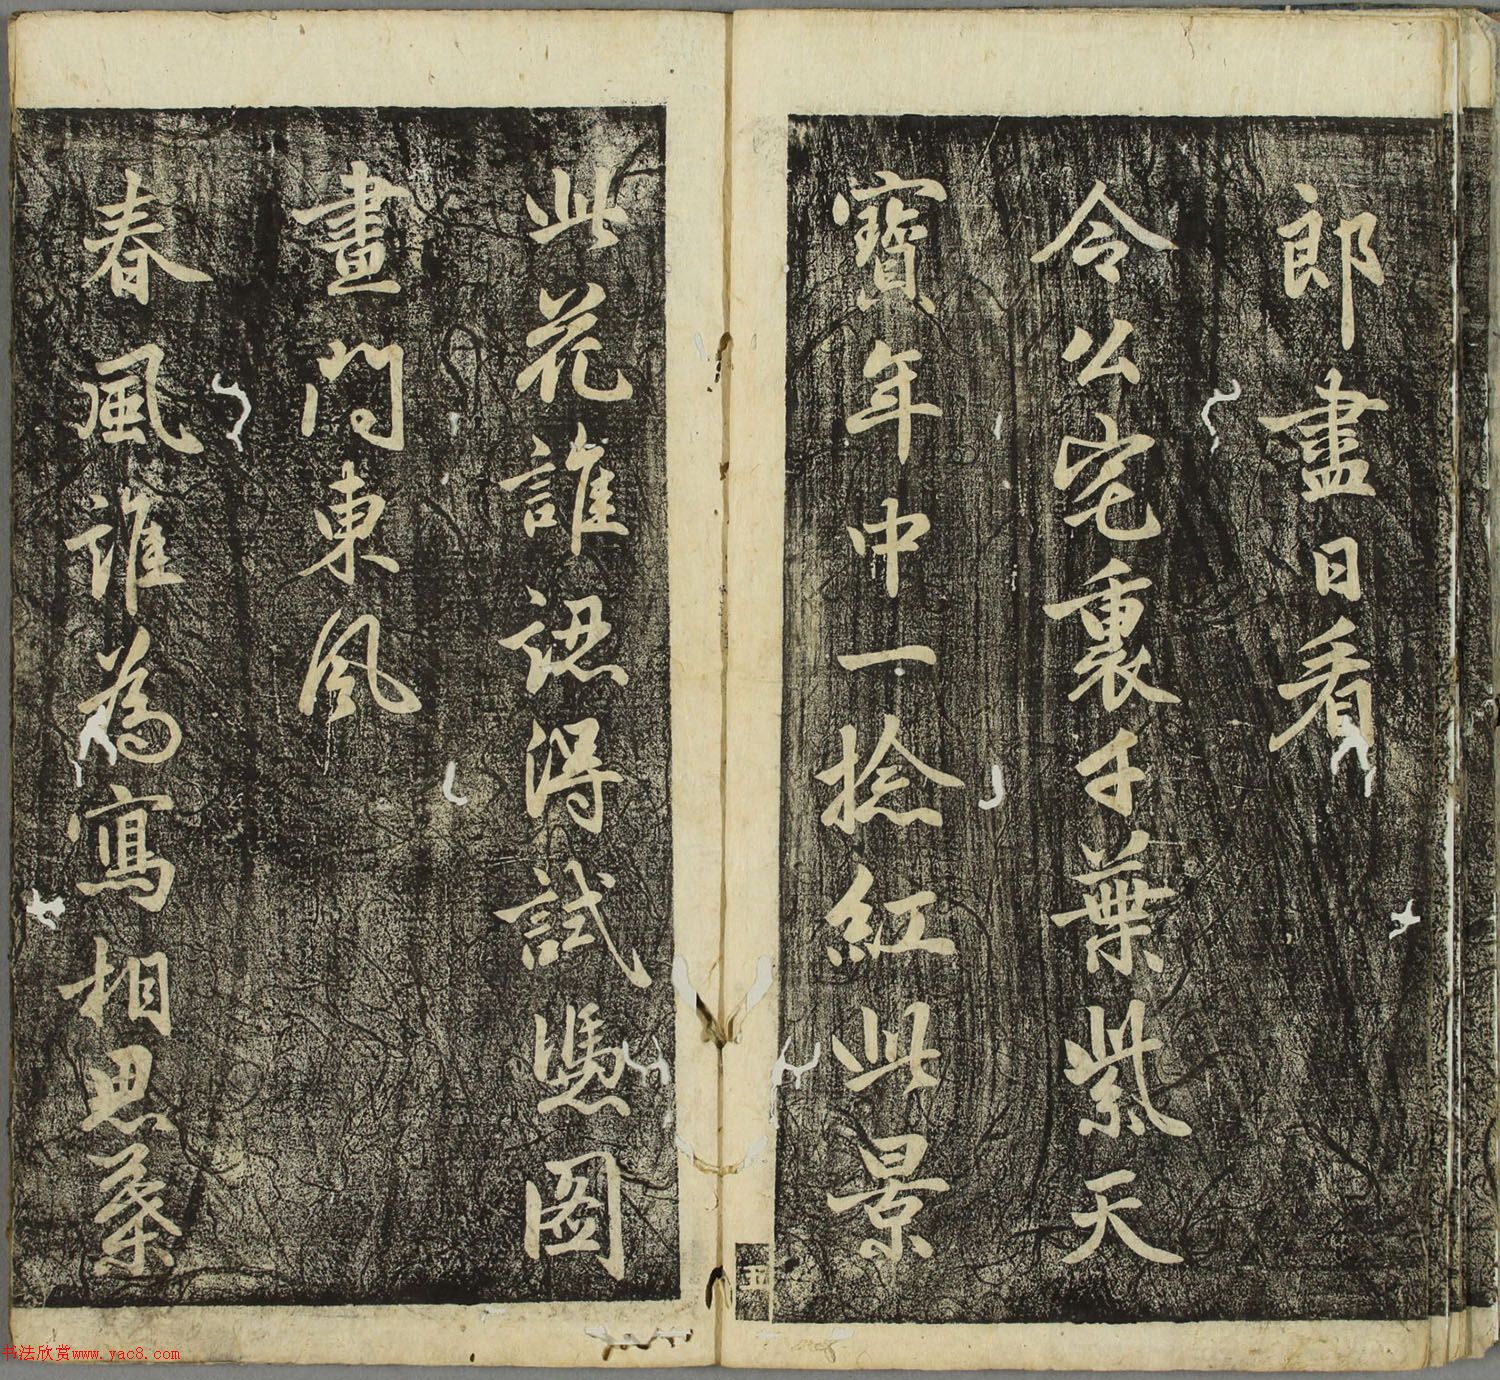 郎盡日看
令公宅裏千葉紫天
寶年中一捻紅此景
此花誰認得試憑圖
畫門東風
春風誰為寫相思葉
五
书法欣赏www.yac8.com